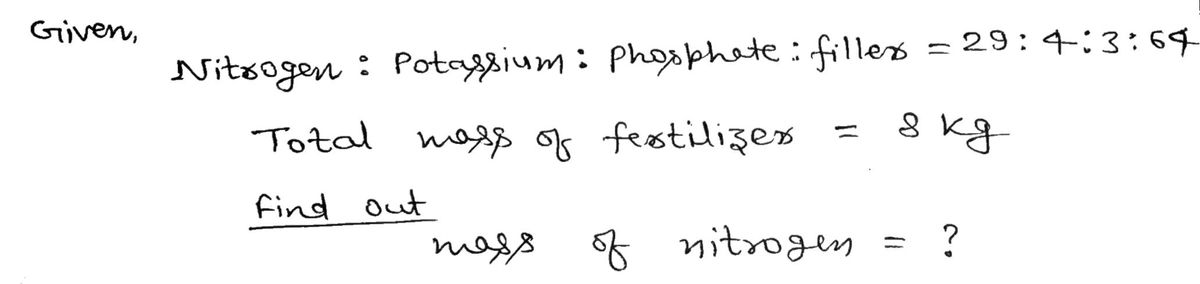 Given,
Nitrogen : Potassium : Phosphate : filler = 29 : 4 : 3 : 64
Total mass of fertilizer = 8 kg
find out
mass of nitrogen = ?